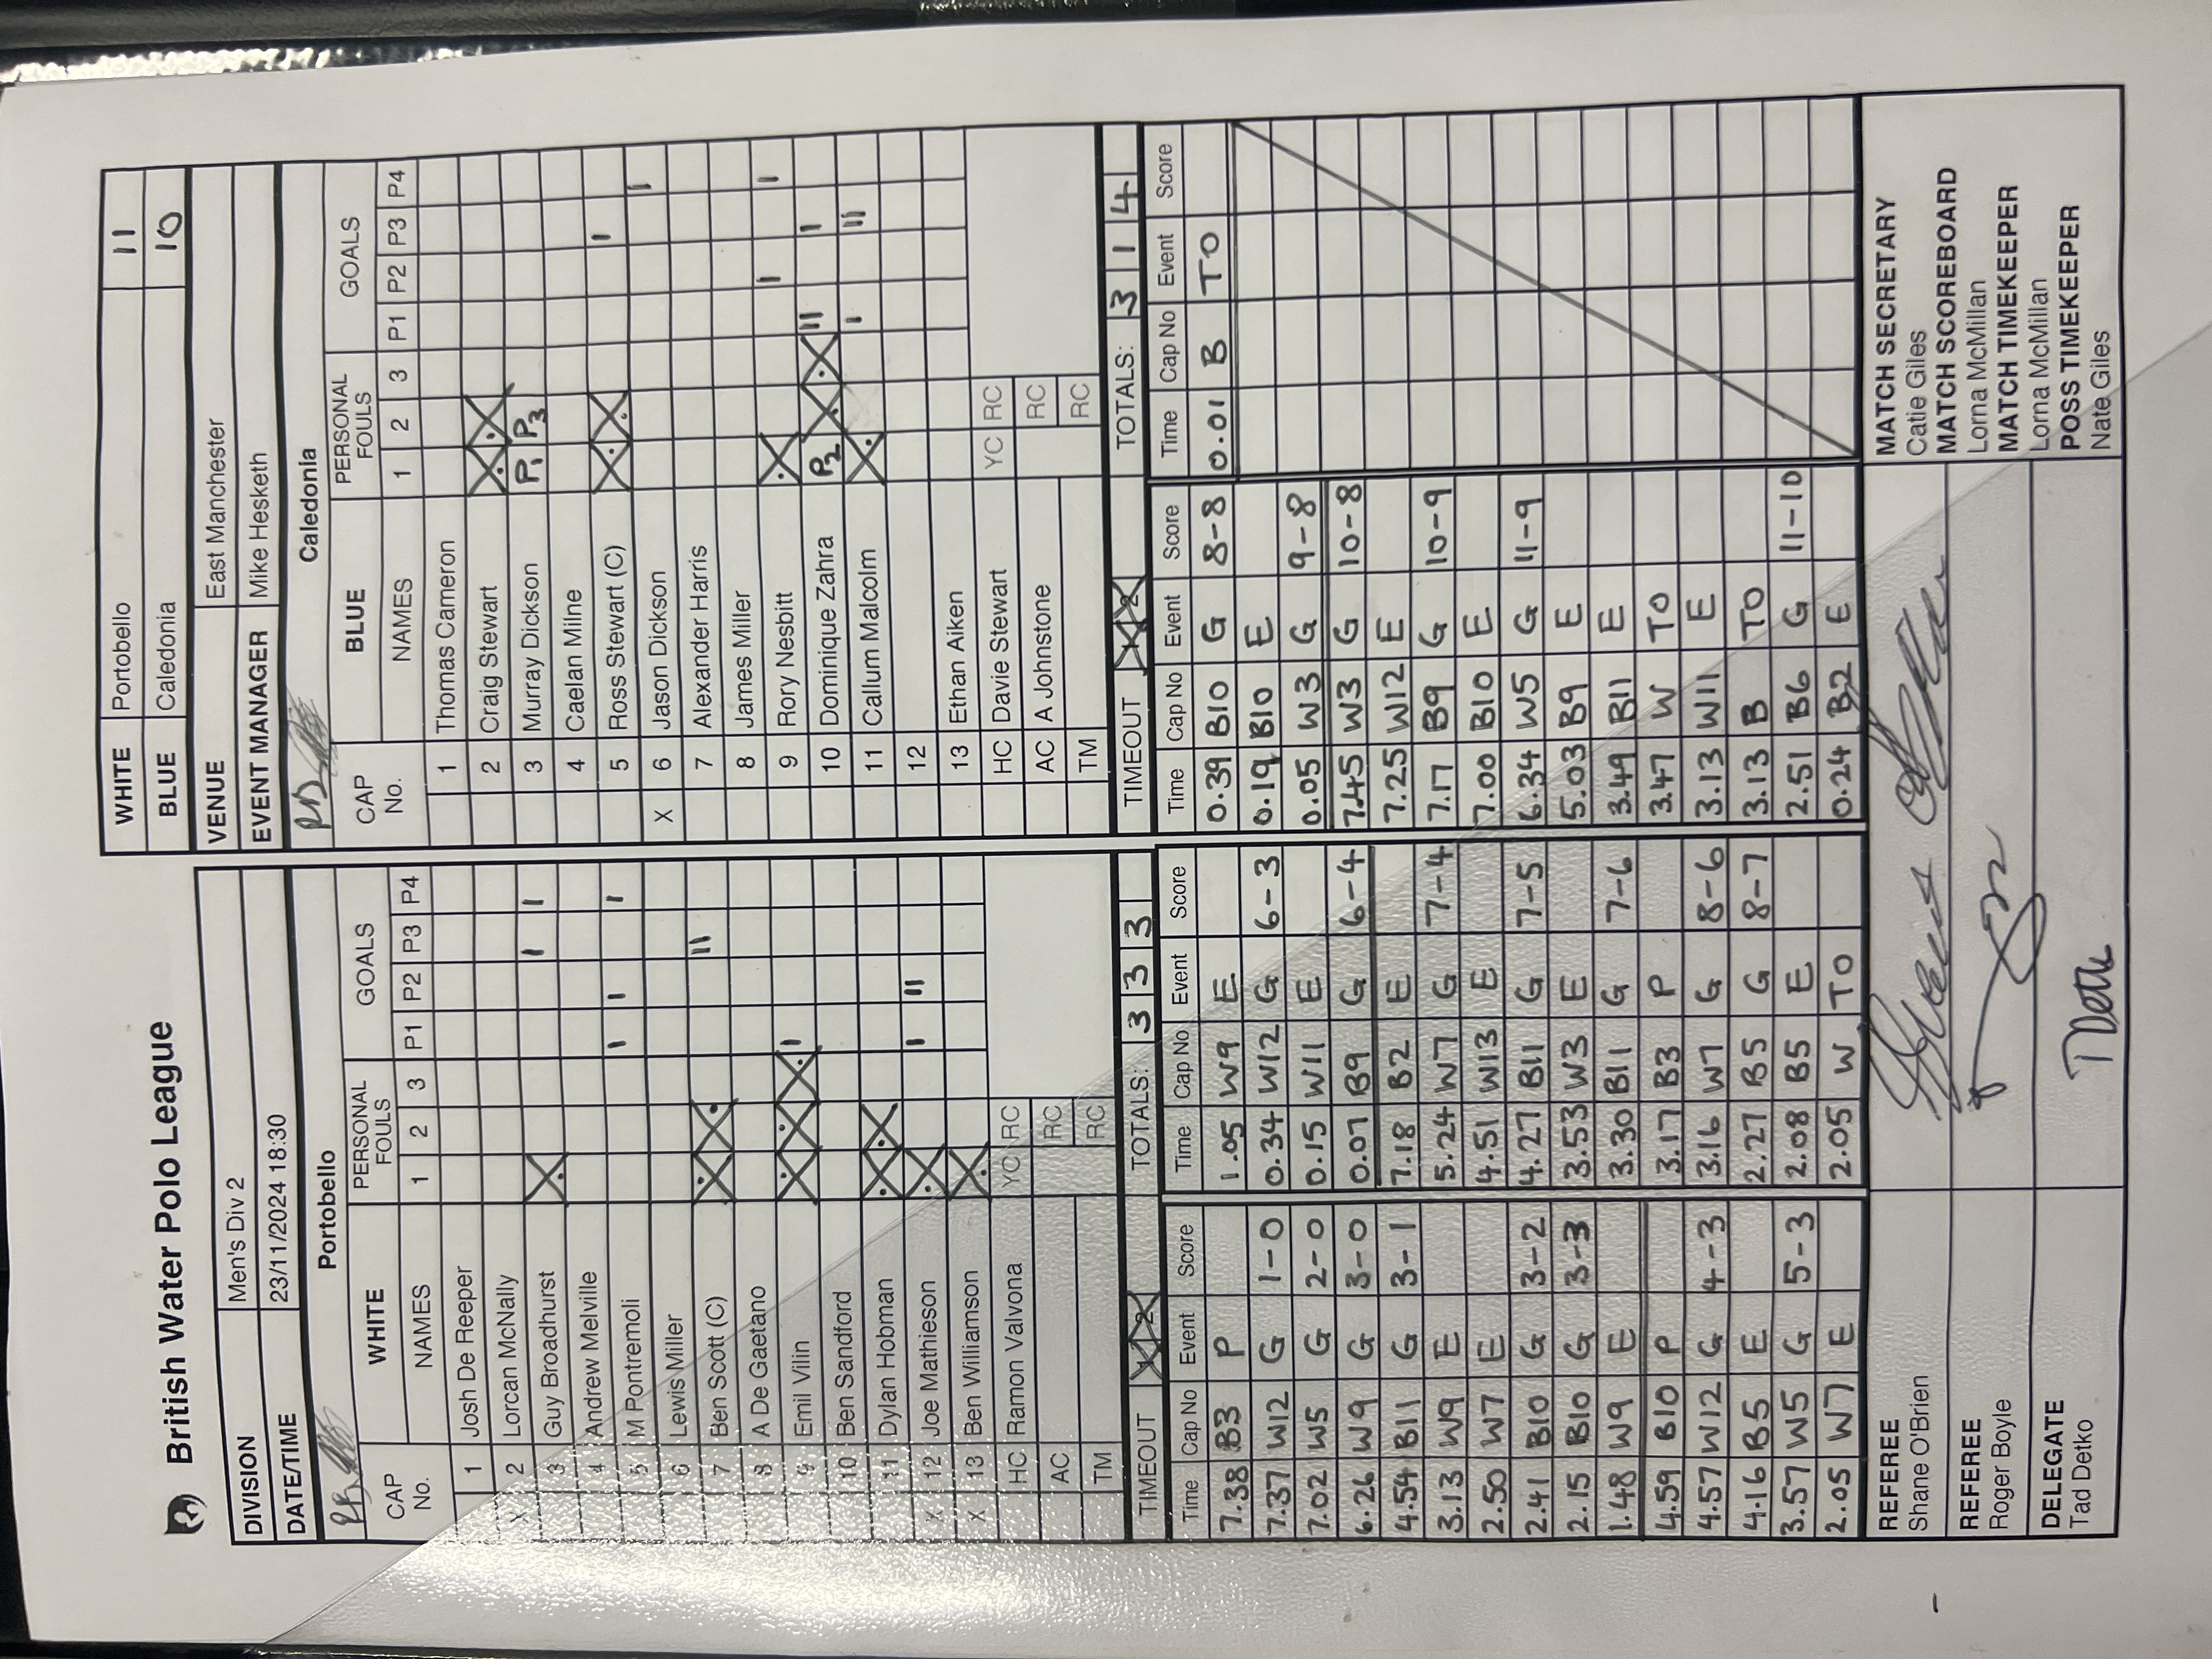 British Water Polo League
WHITE Portobello 11
BLUE Caledonia 10
DIVISION Men's Div 2
DATE/TIME 23/11/2024 18:30
VENUE East Manchester
EVENT MANAGER Mike Hesketh
Portobello
CAP No. WHITE NAMES PERSONAL FOULS 1 2 3 GOALS P1 P2 P3 P4
1 Josh De Reeper
X 2 Lorcan McNally
3 Guy Broadhurst X I I
4 Andrew Melville
5 M Pontremoli I I I
6 Lewis Miller
7 Ben Scott (C) X X II
8 A De Gaetano
9 Emil Vilin X X X I
10 Ben Sandford
11 Dylan Hobman X X
X 12 Joe Mathieson X I II
X 13 Ben Williamson X
HC Ramon Valvona YC RC
AC RC
TM RC
TIMEOUT 1 2 TOTALS: 3 3 3 3
Caledonia
CAP No. BLUE NAMES PERSONAL FOULS 1 2 3 GOALS P1 P2 P3 P4
1 Thomas Cameron
2 Craig Stewart X X
3 Murray Dickson P1 P3
4 Caelan Milne
5 Ross Stewart (C) X X I
X 6 Jason Dickson I
7 Alexander Harris
8 James Miller
9 Rory Nesbitt X I I
10 Dominique Zahra P2 X X II I
11 Callum Malcolm X I II
12
13 Ethan Aiken
HC Davie Stewart YC RC
AC A Johnstone RC
TM RC
TIMEOUT 1 2 TOTALS: 3 1 4
Time Cap No Event Score
7.38 B3 P
7.37 W12 G 1-0
7.02 W5 G 2-0
6.26 W9 G 3-0
4.54 B11 G 3-1
3.13 W9 E
2.50 W7 E
2.41 B10 G 3-2
2.15 B10 G 3-3
1.48 W9 E
4.59 B10 P
4.57 W12 G 4-3
4.16 B5 E
3.57 W5 G 5-3
2.05 W7 E
Time Cap No Event Score
1.05 W9 E
0.34 W12 G 6-3
0.15 W11 E
0.07 B9 G 6-4
7.18 B2 E
5.24 W7 G 7-4
4.51 W13 E
4.27 B11 G 7-5
3.53 W3 E
3.30 B11 G 7-6
3.17 B3 P
3.16 W7 G 8-6
2.27 B5 G 8-7
2.08 B5 E
2.05 W TO
Time Cap No Event Score
0.39 B10 G 8-8
0.19 B10 E
0.05 W3 G 9-8
7.45 W3 G 10-8
7.25 W12 E
7.17 B9 G 10-9
7.00 B10 E
6.34 W5 G 11-9
5.03 B9 E
3.49 B11 E
3.47 W TO
3.13 W11 E
3.13 B TO
2.51 B6 G 11-10
0.24 B2 E
Time Cap No Event Score
0.01 B TO
REFEREE
Shane O'Brien
REFEREE
Roger Boyle
DELEGATE
Tad Detko
MATCH SECRETARY
Catie Giles
MATCH SCOREBOARD
Lorna McMillan
MATCH TIMEKEEPER
Lorna McMillan
POSS TIMEKEEPER
Nate Giles